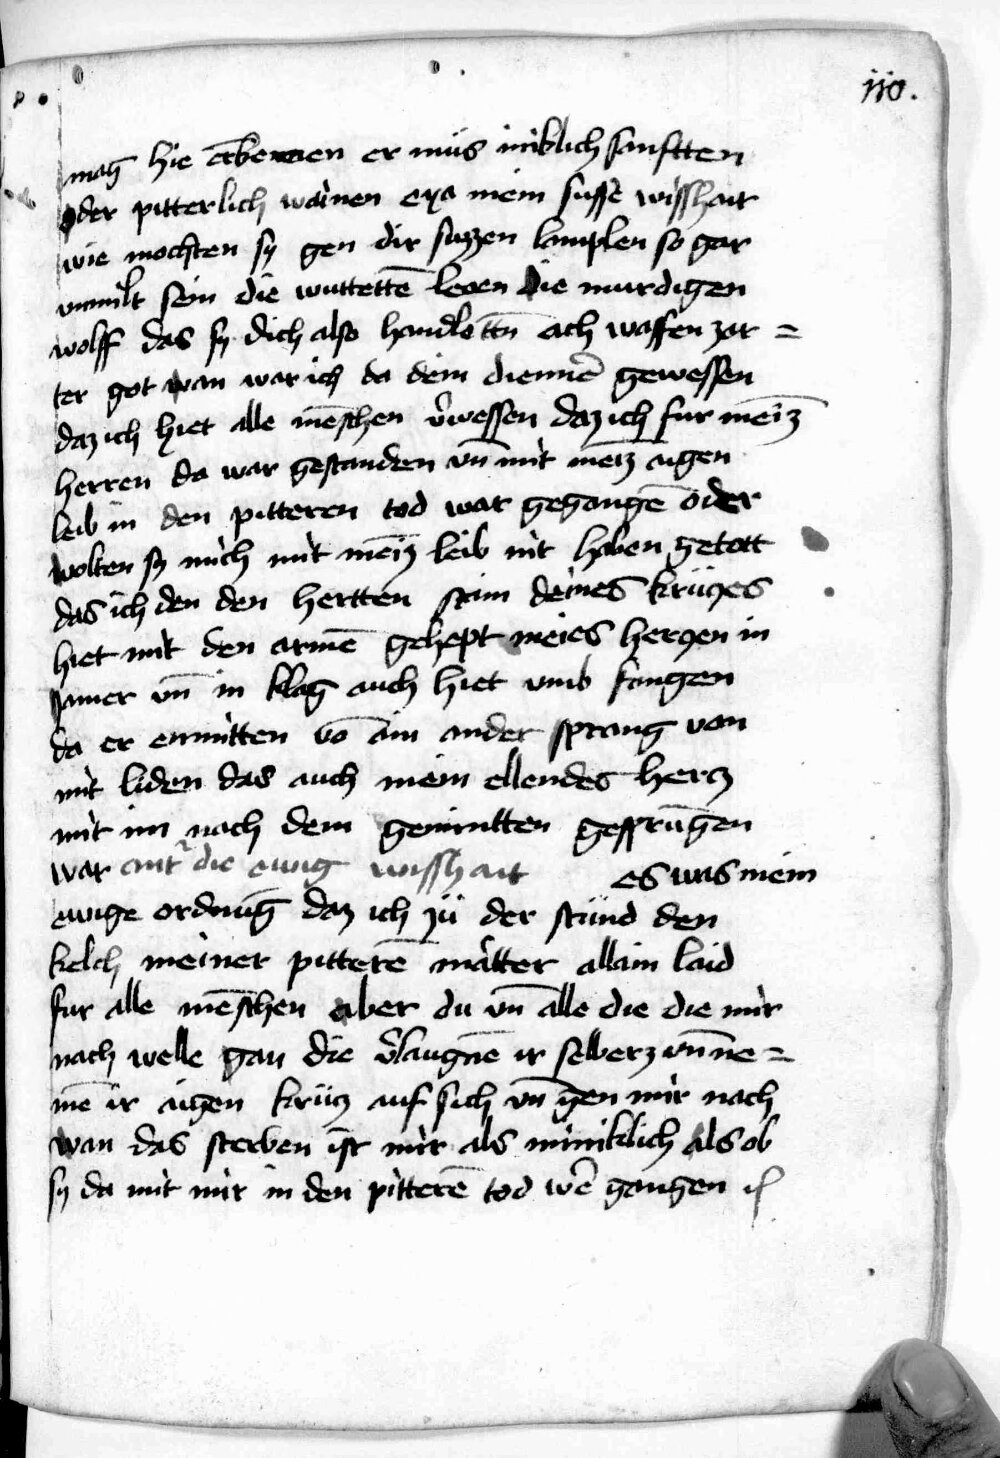 110.
mag hie erbermen er müs iniklich sanfftten
oder pitterlich wainen eya mein susse wisshait
wie mochten sy gen dir suzzen lamplen so gar
vnmilt sein die wuttettē leoen die murdigen
wolff das sy dich also handlettn̄ ach waffen zar =
ter got wan war ich da dein diennē gewessen
daz ich hiet alle mēschen v̄wessen daz ich fur meīz
herren da war gestanden vn̄ mit meīz aigen
leib in den pitteren tod war gegangē oder
wolten sy mich mit meīz leib nit haben getott
das ich den den hertten stain deines krüczes
hiet mit den armē gehept meies herczen in
jamer vn̄ in klag auch hiet vmb fangen
da er enmitten vō ain ander sprang von
mit liden das auch mein ellendes hercz
mit im nach dem gemintten gesprūgen
war antr̄ die ewig wisshait es was mein
ewige ordnūg daz ich zü der stünd den
kelch meiner pitterē matter allain laid
fur alle mēschen aber du vn̄ alle die die mir
nach welle gan die v̄laugnē ir selberz vn̄ ne =
mē ir aigen krücz auf sich vn̄ gen mir nach
wan das sterben ist mir als miniklich als ob
sy da mit mir in den pitterē tod wē gangen